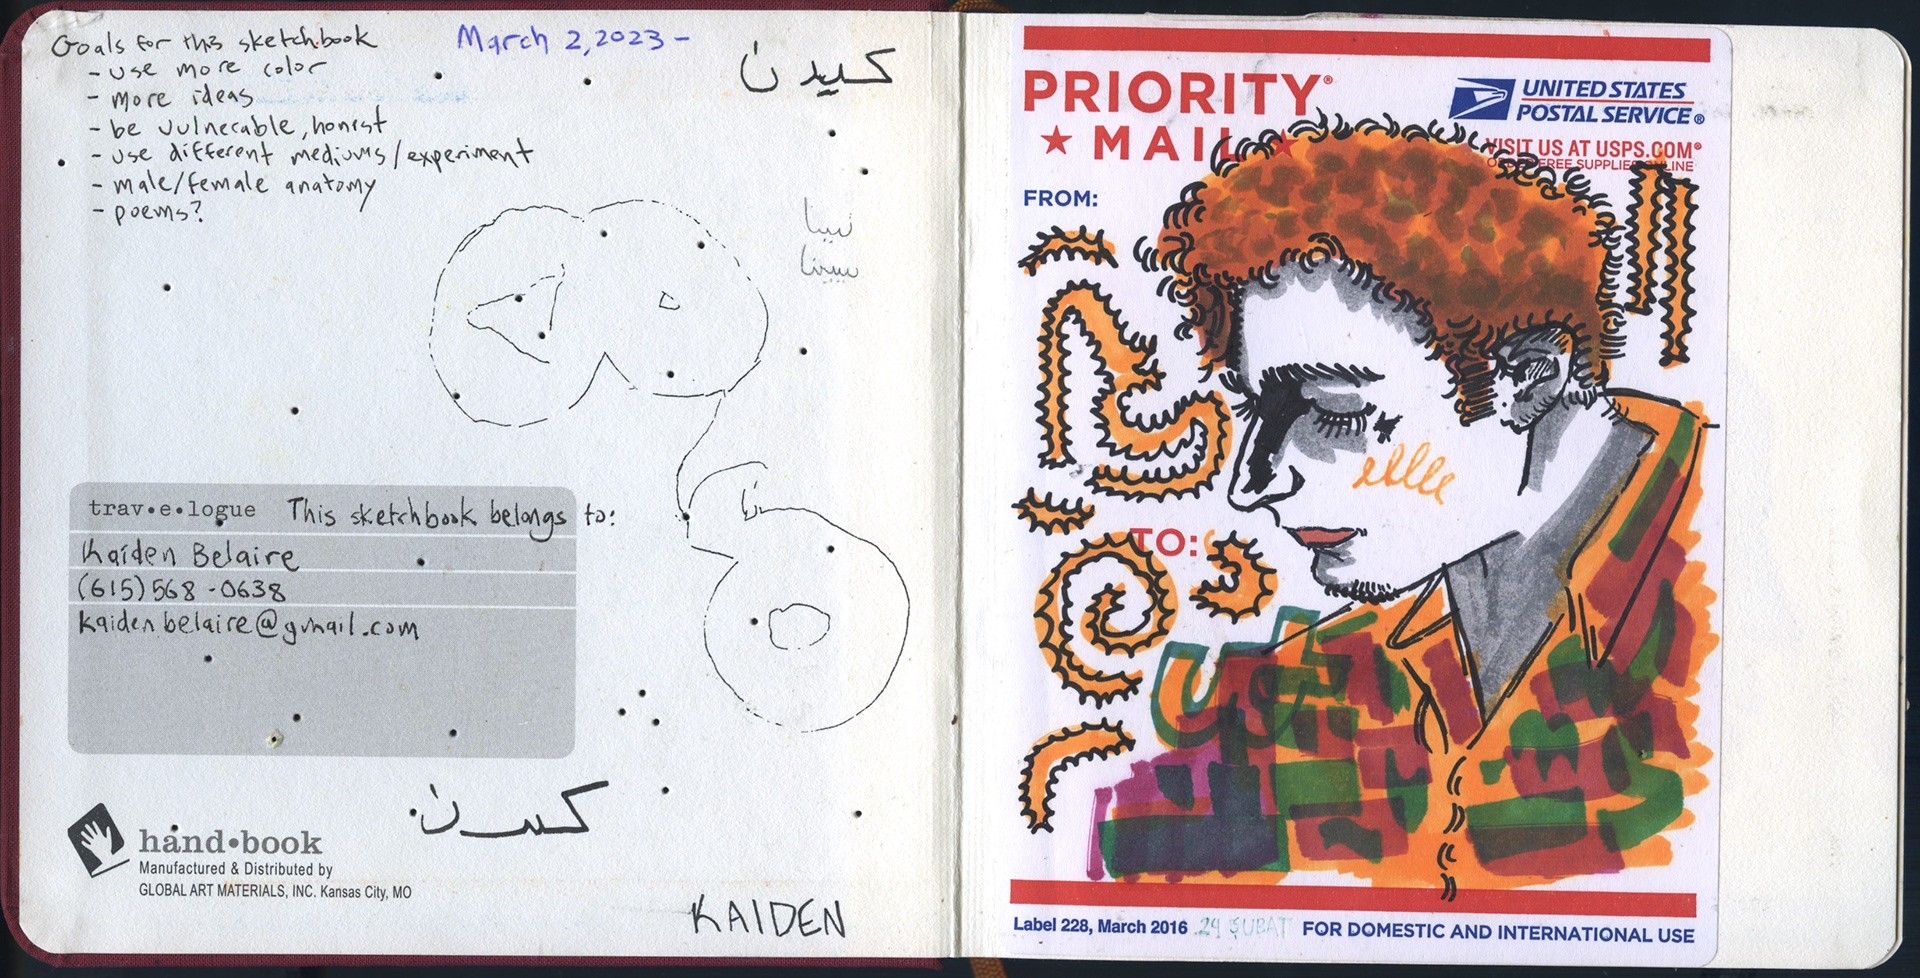 Goals for this sketchbook
- use more color
- more ideas
- be vulnerable, honest
- use different mediums/experiment
- male/female anatomy
- poems?
March 2, 2023 -
كيدن
نينا
trav•e•logue This sketchbook belongs to:
Kaiden Belaire
(615)568-0638
kaidenbelaire@gmail.com
كيدن
hand•book
Manufactured & Distributed by
GLOBAL ART MATERIALS, INC. Kansas City, MO
KAIDEN
PRIORITY®
★ MAIL ★
UNITED STATES
POSTAL SERVICE®
VISIT US AT USPS.COM®
ORDER FREE SUPPLIES ONLINE
FROM:
TO:
Label 228, March 2016 24 ŞUBAT FOR DOMESTIC AND INTERNATIONAL USE